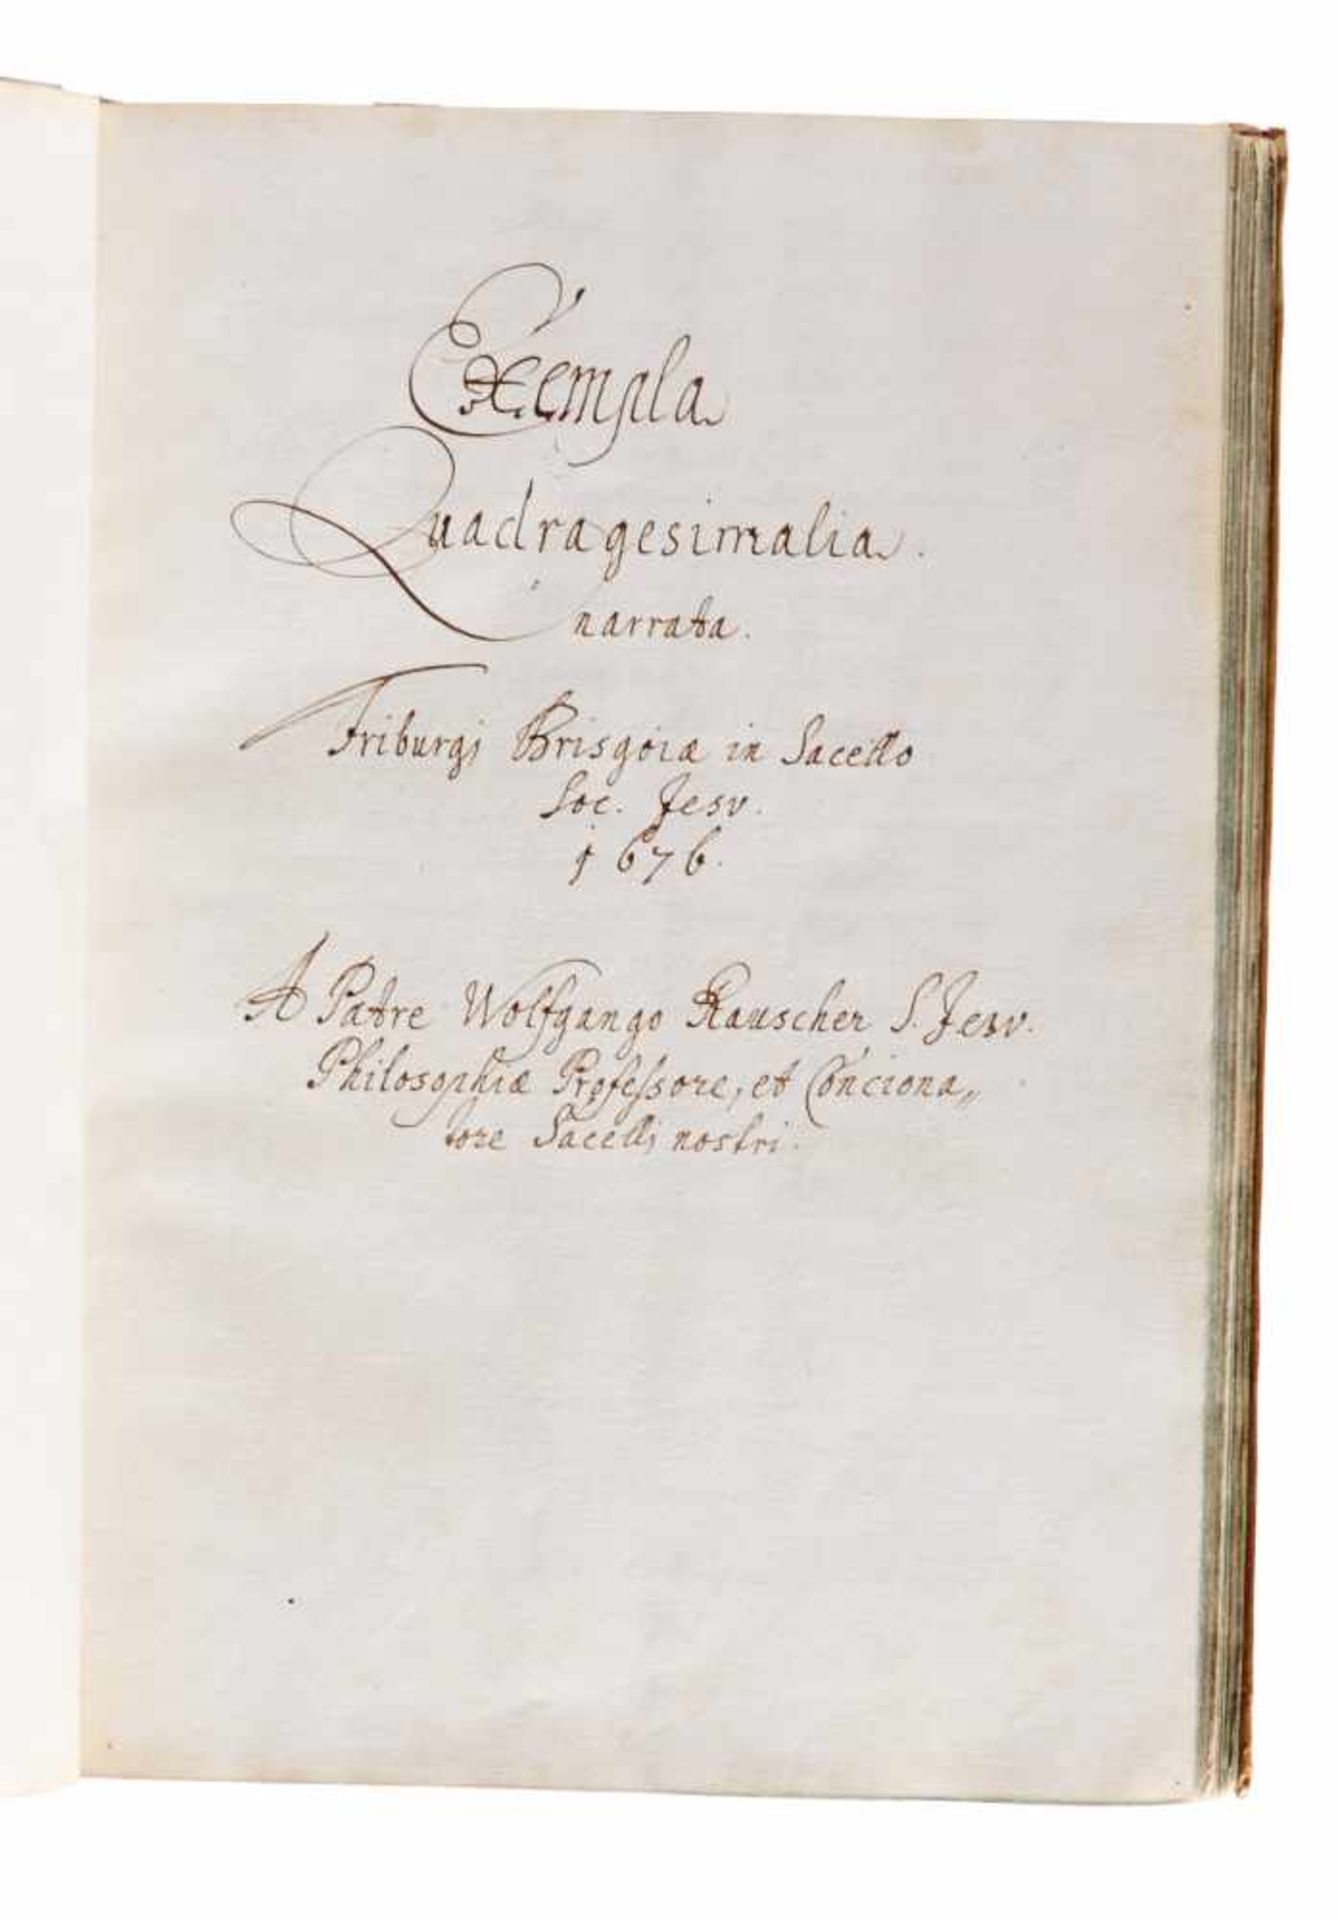 Exempla
Quadragesimalia.
narrata.
Friburgi Brisgoiæ in Sacello
Soc. Jesv.
1676.
A Patre Wolfgango Rauscher S. Jesv.
Philosophiæ Professore, et Conciona„
tore Sacelli nostri.